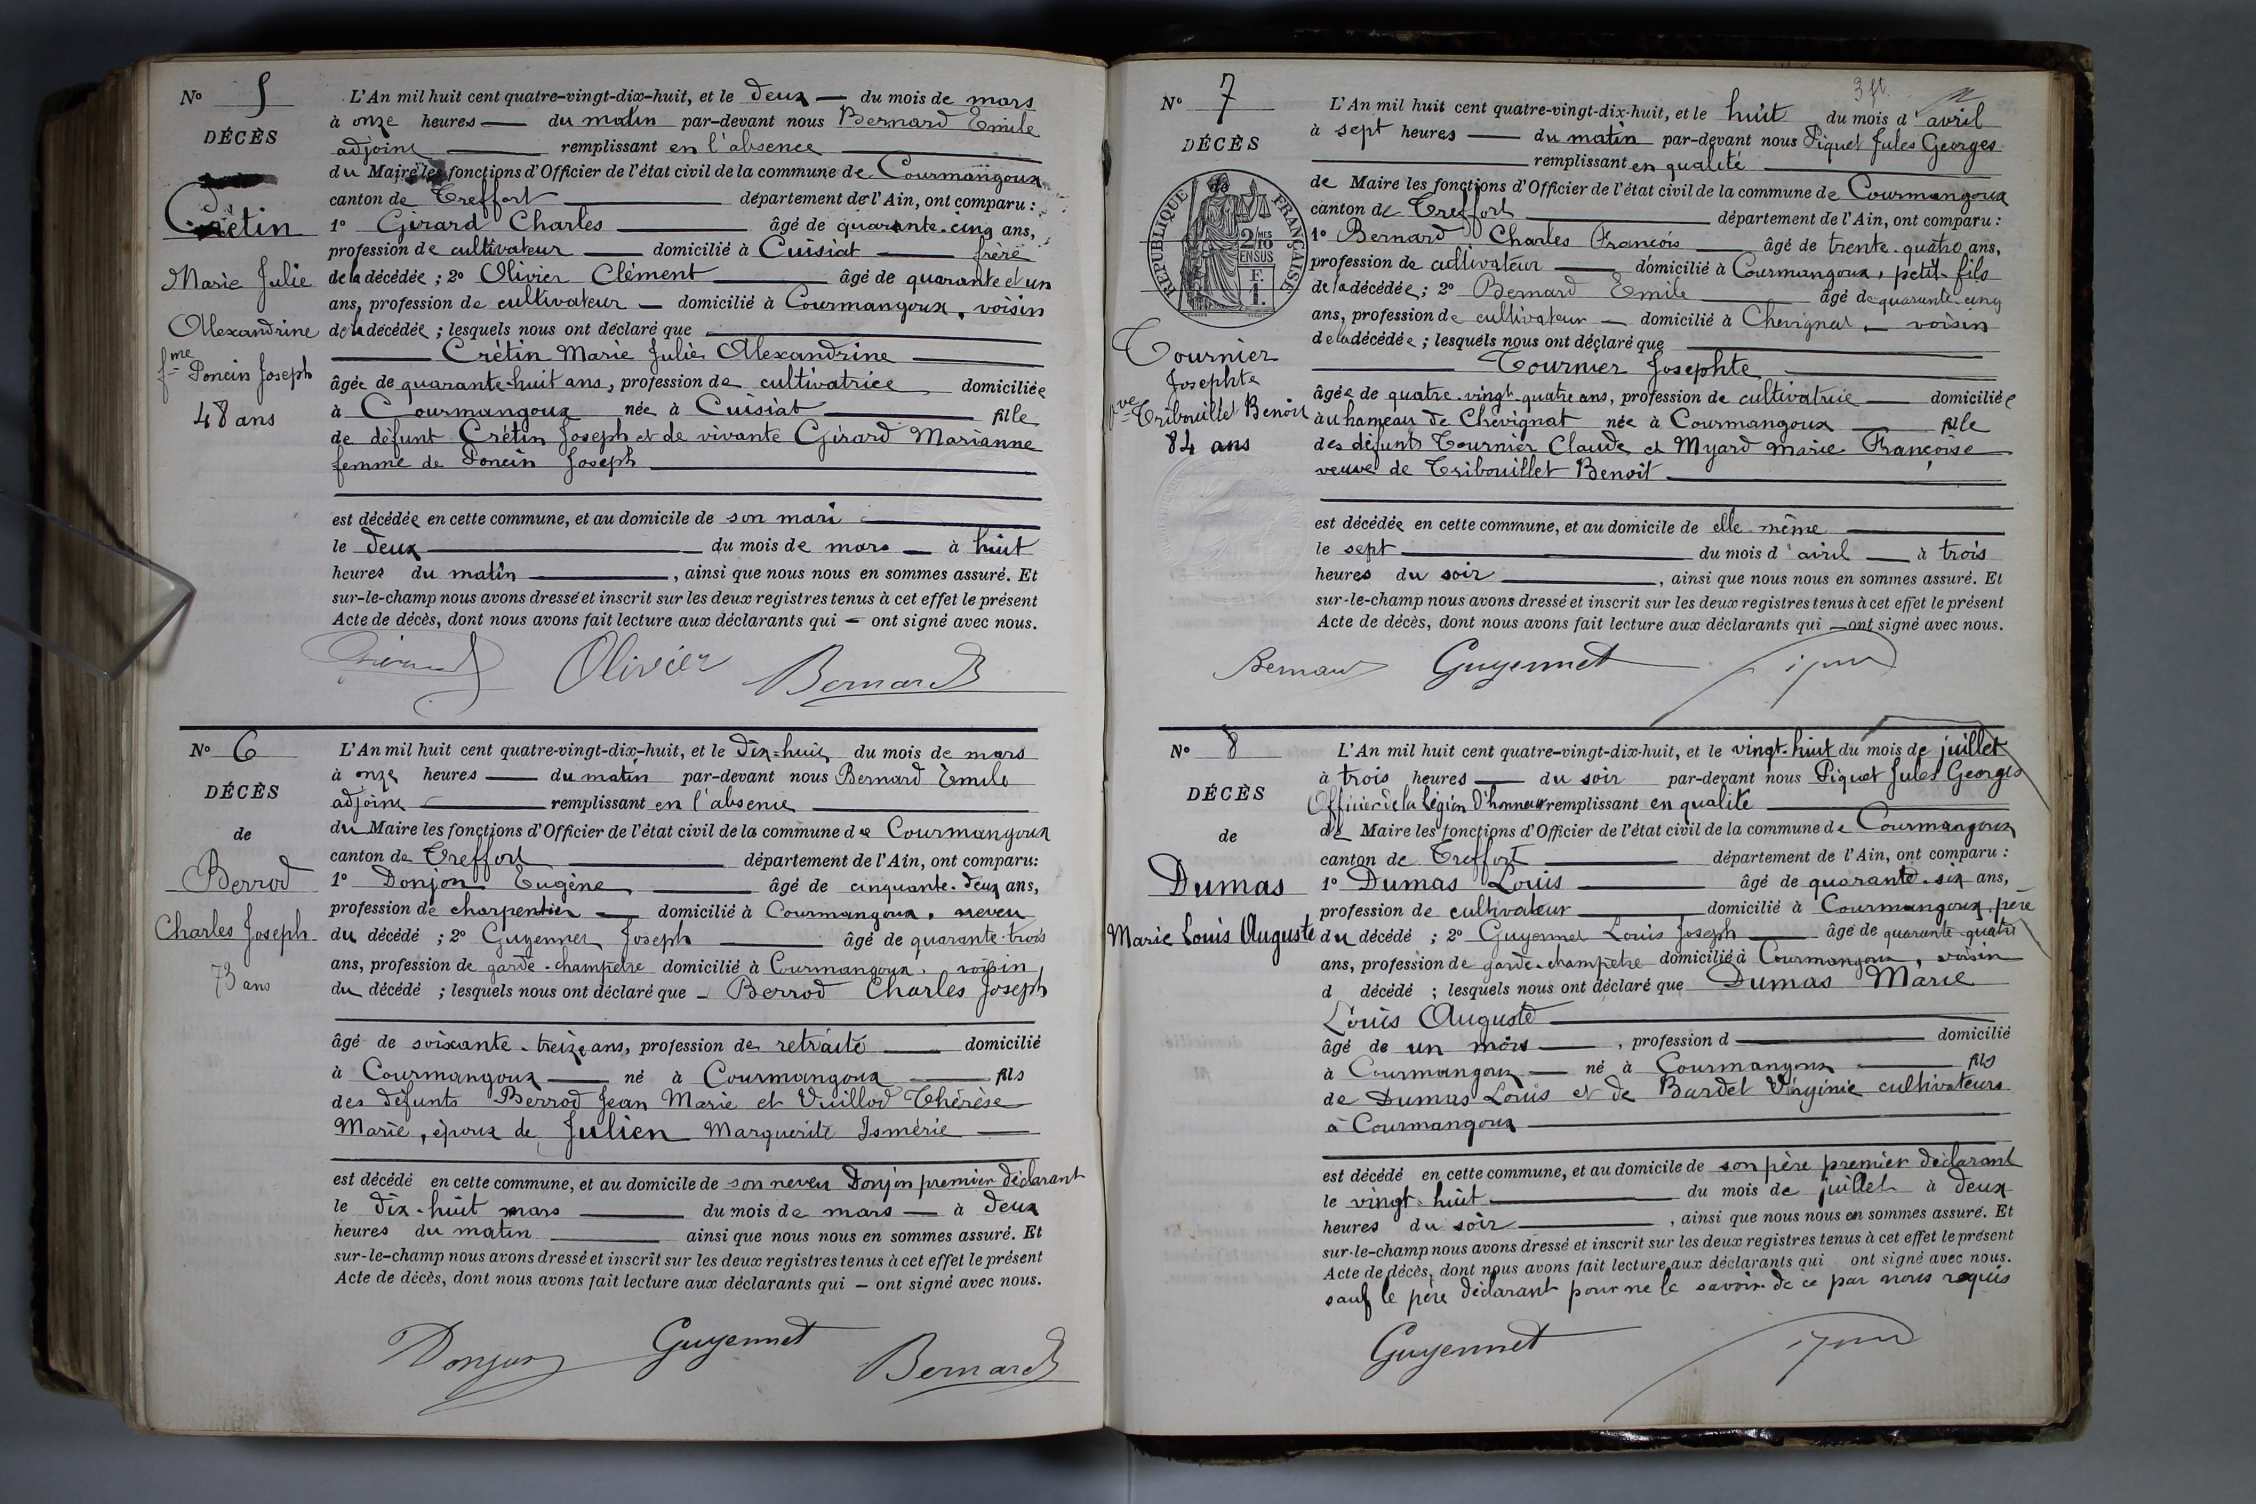 N° 5
DÉCÈS
de
Crétin
Marie Julie
Alexandrine
fme Poncin Joseph
48 ans
L'An mil huit cent quatre-vingt-dix-huit, et le deux du mois de mars
à onze heures du matin par-devant nous Bernard Emile
adjoint remplissant en l'absence
du Maire les fonctions d'Officier de l'état civil de la commune de Courmangoux
canton de Treffort département de l'Ain, ont comparu :
1° Girard Charles âgé de quarante-cinq ans,
profession de cultivateur domicilié à Cuisiat frère
de la décédée ; 2° Olivier Clément âgé de quarante et un
ans, profession de cultivateur domicilié à Courmangoux, voisin
de la décédée ; lesquels nous ont déclaré que
Crétin Marie Julie Alexandrine
âgée de quarante-huit ans, profession de cultivatrice domiciliée
à Courmangoux née à Cuisiat fille
de défunt Crétin Joseph et de vivante Girard Marianne
femme de Poncin Joseph
est décédée en cette commune, et au domicile de son mari
le deux du mois de mars à huit
heures du matin, ainsi que nous nous en sommes assuré. Et
sur-le-champ nous avons dressé et inscrit sur les deux registres tenus à cet effet le présent
Acte de décès, dont nous avons fait lecture aux déclarants qui — ont signé avec nous.
Girard Olivier Bernard
N° 6
DÉCÈS
de
Berrod
Charles Joseph
73 ans
L'An mil huit cent quatre-vingt-dix-huit, et le dix-huit du mois de mars
à onze heures du matin par-devant nous Bernard Emile
adjoint remplissant en l'absence
du Maire les fonctions d'Officier de l'état civil de la commune de Courmangoux
canton de Treffort département de l'Ain, ont comparu:
1° Donjon Eugène âgé de cinquante-deux ans,
profession de charpentier domicilié à Courmangoux, neveu
du décédé ; 2° Guyennet Joseph âgé de quarante-trois
ans, profession de garde-champêtre domicilié à Courmangoux, voisin
du décédé ; lesquels nous ont déclaré que Berrod Charles Joseph
âgé de soixante-treize ans, profession de retraité domicilié
à Courmangoux né à Courmangoux fils
des défunts Berrod Jean Marie et Vuillod Thérèse
Marie, époux de Julien Marguerite Ismérie
est décédé en cette commune, et au domicile de son neveu Donjon premier déclarant
le dix-huit mars du mois de mars à deux
heures du matin ainsi que nous nous en sommes assuré. Et
sur-le-champ nous avons dressé et inscrit sur les deux registres tenus à cet effet le présent
Acte de décès, dont nous avons fait lecture aux déclarants qui — ont signé avec nous.
Donjon Guyennet Bernard
N° 7
DÉCÈS
RÉPUBLIQUE FRANÇAISE
2 MES
10
EN SUS
F.
1.
Tournier
Josephte
vve Tribouillet Benoit
84 ans
L'An mil huit cent quatre-vingt-dix-huit, et le huit du mois d'avril
à sept heures du matin par-devant nous Piquet Jules Georges
remplissant en qualité
de Maire les fonctions d'Officier de l'état civil de la commune de Courmangoux
canton de Treffort département de l'Ain, ont comparu :
1° Bernard Charles François âgé de trente-quatre ans,
profession de cultivateur domicilié à Courmangoux, petit-fils
de la décédée; 2° Bernard Emile âgé de quarante-cinq
ans, profession de cultivateur domicilié à Chevignat, voisin
de la décédée ; lesquels nous ont déclaré que
Tournier Josephte
âgée de quatre-vingt-quatre ans, profession de cultivatrice domiciliée
au hameau de Chevignat née à Courmangoux fille
des défunts Tournier Claude et Myard Marie Françoise
veuve de Tribouillet Benoit
est décédée en cette commune, et au domicile de elle-même
le sept du mois d'avril à trois
heures du soir, ainsi que nous nous en sommes assuré. Et
sur-le-champ nous avons dressé et inscrit sur les deux registres tenus à cet effet le présent
Acte de décès, dont nous avons fait lecture aux déclarants qui — ont signé avec nous.
Bernard Guyennet
N° 8
DÉCÈS
de
Dumas
Marie Louis Auguste
L'An mil huit cent quatre-vingt-dix-huit, et le vingt-huit du mois de juillet
à trois heures du soir par-devant nous Piquet Jules Georges
Officier de la Légion d'honneur remplissant en qualité
de Maire les fonctions d'Officier de l'état civil de la commune de Courmangoux
canton de Treffort département de l'Ain, ont comparu :
1° Dumas Louis âgé de quarante-six ans,
profession de cultivateur domicilié à Courmangoux, père
du décédé ; 2° Guyennet Louis Joseph âgé de quarante-quatre
ans, profession de garde-champêtre domicilié à Courmangoux, voisin
d décédé ; lesquels nous ont déclaré que Dumas Marie
Louis Auguste
âgé de un mois, profession d domicilié
à Courmangoux né à Courmangoux fils
de Dumas Louis et de Bardet Virginie cultivateurs
à Courmangoux
est décédé en cette commune, et au domicile de son père premier déclarant
le vingt-huit du mois de juillet à deux
heures du soir, ainsi que nous nous en sommes assuré. Et
sur-le-champ nous avons dressé et inscrit sur les deux registres tenus à cet effet le présent
Acte de décès, dont nous avons fait lecture aux déclarants qui ont signé avec nous.
sauf le père déclarant pour ne le savoir de ce par nous requis
Guyennet